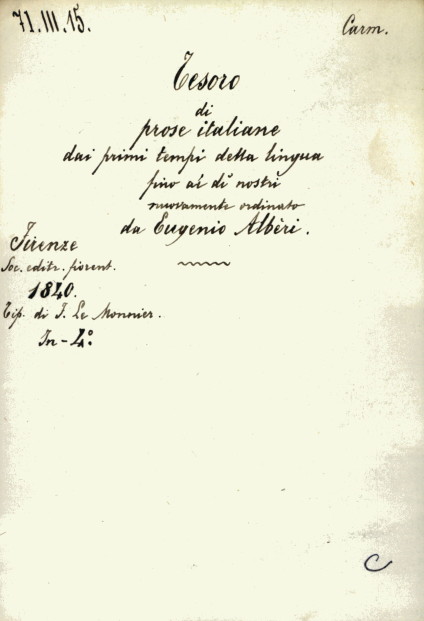 71.III.15.
Carm.
Tesoro
di
prose italiane
dai primi tempi della lingua
fino ai dì nostri
nuovamente ordinato
da Eugenio Albèri.
Firenze
Soc. editr. fiorent.
1840.
Tip. di F. Le Monnier.
In-4º
C